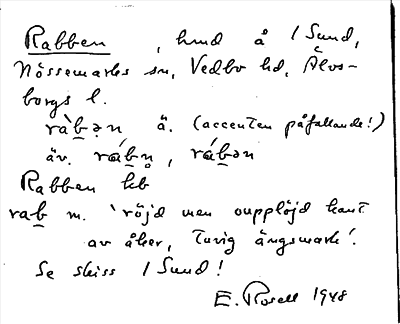 Rabben, hmd å 1 Sund,
Nössemarks sn, Vedbo hd, Älvs-
borgs l.
ràb̲ən ä. (accenten påfallande!)
äv. ráb̲n̥, ráb̲ən
Rabben hb
rab̲ m. 'röjd men oupplöjd kant
av åker, turig ängsmark'.
Se skiss 1 Sund!
E. Rosell 1948